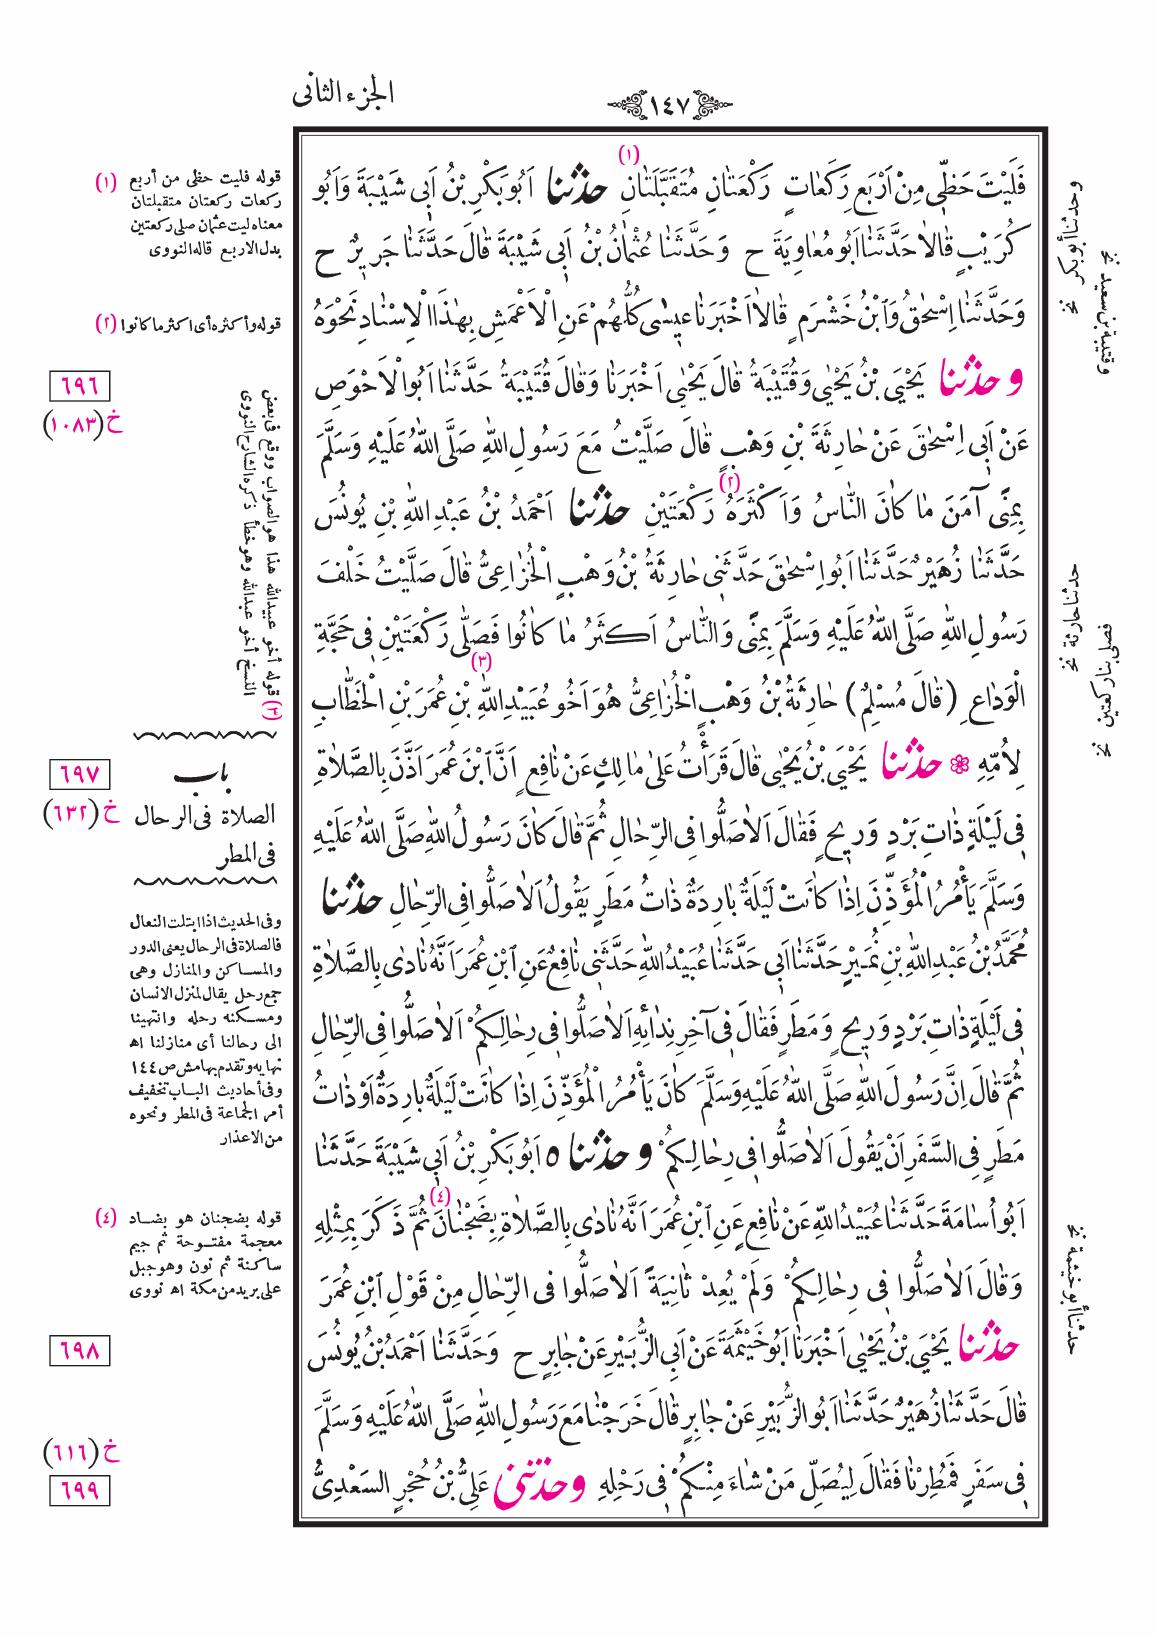 الجزء الثانى
١٤٧
فَلَيْتَ حَظِّى مِنْ اَرْبَعِ رَكَعَاتٍ رَكْعَتَانِ مُتَقَبَّلَتَانِ (١) حدثنا اَبُو بَكْرِ بْنُ اَبِى شَيْبَةَ وَاَبُو
كُرَيْبٍ قَالَا حَدَّثَنَا اَبُو مُعَاوِيَةَ ح وَحَدَّثَنَا عُثْمَانُ بْنُ اَبِى شَيْبَةَ قَالَ حَدَّثَنَا جَرِيرٌ ح
وَحَدَّثَنَا اِسْحٰقُ وَابْنُ خَشْرَمٍ قَالَا اَخْبَرَنَا عِيسٰى كُلُّهُمْ عَنِ الْاَعْمَشِ بِهٰذَا الْاِسْنَادِ نَحْوَهُ
و حدثنا يَحْيَى بْنُ يَحْيٰى وَقُتَيْبَةُ قَالَ يَحْيٰى اَخْبَرَنَا وَقَالَ قُتَيْبَةُ حَدَّثَنَا اَبُو الْاَحْوَصِ
عَنْ اَبِى اِسْحٰقَ عَنْ حَارِثَةَ بْنِ وَهْبٍ قَالَ صَلَّيْتُ مَعَ رَسُولِ اللهِ صَلَّى اللهُ عَلَيْهِ وَسَلَّمَ
بِمِنًى آمَنَ مَا كَانَ النَّاسُ وَاَكْثَرَهُ (٢) رَكْعَتَيْنِ حدثنا اَحْمَدُ بْنُ عَبْدِ اللهِ بْنِ يُونُسَ
حَدَّثَنَا زُهَيْرٌ حَدَّثَنَا اَبُو اِسْحٰقَ حَدَّثَنِى حَارِثَةُ بْنُ وَهْبٍ الْخُزَاعِىُّ قَالَ صَلَّيْتُ خَلْفَ
رَسُولِ اللهِ صَلَّى اللهُ عَلَيْهِ وَسَلَّمَ بِمِنًى وَالنَّاسُ اَكْثَرُ مَا كَانُوا فَصَلَّى رَكْعَتَيْنِ فِى حَجَّةِ
الْوَدَاعِ (قَالَ مُسْلِمٌ) حَارِثَةُ بْنُ وَهْبٍ الْخُزَاعِىُّ هُوَ اَخُو عُبَيْدِ اللهِ (٣) بْنِ عُمَرَ بْنِ الْخَطَّابِ
لِاُمِّهِ ❁ حدثنا يَحْيَى بْنُ يَحْيٰى قَالَ قَرَأْتُ عَلٰى مَالِكٍ عَنْ نَافِعٍ اَنَّ ابْنَ عُمَرَ اَذَّنَ بِالصَّلَاةِ
فِى لَيْلَةٍ ذَاتِ بَرْدٍ وَرِيحٍ فَقَالَ اَلَا صَلُّوا فِى الرِّحَالِ ثُمَّ قَالَ كَانَ رَسُولُ اللهِ صَلَّى اللهُ عَلَيْهِ
وَسَلَّمَ يَأْمُرُ الْمُؤَذِّنَ اِذَا كَانَتْ لَيْلَةٌ بَارِدَةٌ ذَاتُ مَطَرٍ يَقُولُ اَلَا صَلُّوا فِى الرِّحَالِ حدثنا
مُحَمَّدُ بْنُ عَبْدِ اللهِ بْنِ نُمَيْرٍ حَدَّثَنَا اَبِى حَدَّثَنَا عُبَيْدُ اللهِ حَدَّثَنِى نَافِعٌ عَنِ ابْنِ عُمَرَ اَنَّهُ نَادٰى بِالصَّلَاةِ
فِى لَيْلَةٍ ذَاتِ بَرْدٍ وَرِيحٍ وَمَطَرٍ فَقَالَ فِى آخِرِ نِدَائِهِ اَلَا صَلُّوا فِى رِحَالِكُمْ اَلَا صَلُّوا فِى الرِّحَالِ
ثُمَّ قَالَ اِنَّ رَسُولَ اللهِ صَلَّى اللهُ عَلَيْهِ وَسَلَّمَ كَانَ يَأْمُرُ الْمُؤَذِّنَ اِذَا كَانَتْ لَيْلَةٌ بَارِدَةٌ اَوْ ذَاتُ
مَطَرٍ فِى السَّفَرِ اَنْ يَقُولَ اَلَا صَلُّوا فِى رِحَالِكُمْ و حدثنا ٥ اَبُو بَكْرِ بْنُ اَبِى شَيْبَةَ حَدَّثَنَا
اَبُو اُسَامَةَ حَدَّثَنَا عُبَيْدُ اللهِ عَنْ نَافِعٍ عَنِ ابْنِ عُمَرَ اَنَّهُ نَادٰى بِالصَّلَاةِ بِضَجْنَانَ (٤) ثُمَّ ذَكَرَ بِمِثْلِهِ
وَقَالَ اَلَا صَلُّوا فِى رِحَالِكُمْ وَلَمْ يُعِدْ ثَانِيَةً اَلَا صَلُّوا فِى الرِّحَالِ مِنْ قَوْلِ ابْنِ عُمَرَ
حدثنا يَحْيَى بْنُ يَحْيٰى اَخْبَرَنَا اَبُو خَيْثَمَةَ عَنْ اَبِى الزُّبَيْرِ عَنْ جَابِرٍ ح وَحَدَّثَنَا اَحْمَدُ بْنُ يُونُسَ
قَالَ حَدَّثَنَا زُهَيْرٌ حَدَّثَنَا اَبُو الزُّبَيْرِ عَنْ جَابِرٍ قَالَ خَرَجْنَا مَعَ رَسُولِ اللهِ صَلَّى اللهُ عَلَيْهِ وَسَلَّمَ
فِى سَفَرٍ فَمُطِرْنَا فَقَالَ لِيُصَلِّ مَنْ شَاءَ مِنْكُمْ فِى رَحْلِهِ وحدثنى عَلِىُّ بْنُ حُجْرٍ السَّعْدِىُّ
وحدثنا أبو بكر نخ
قتيبة بن سعيد نخ
حدثنا حارثة نخ
فصلى بنا ركعتين نخ
حدثنا أبو خيثمة نخ
(١) قوله فليت حظى من أربع
ركعات ركعتان متقبلتان
معناه ليت عثمان صلى ركعتين
بدل الاربع قاله النووى
(٢) قوله وأكثره أى اكثر ما كانوا
٦٩٦
خ (١٠٨٣)
(٣) قوله أخو عبيدالله هذا هو الصواب ووقع فى بعض
النسخ أخو عبدالله وهو خطأ ذكره الشارح النووى
٦٩٧
خ (٦٣٢)
باب
الصلاة فى الرحال
فى المطر
وفى الحديث اذا ابتلت النعال
فالصلاة فى الرحال يعنى الدور
والمساكن والمنازل وهى
جمع رحل يقال لمنزل الانسان
ومسكنه رحله وانتهينا
الى رحالنا أى منازلنا اه
نهايه وتقدم بهامش ص ١٤٤
وفى أحاديث الباب تخفيف
أمر الجماعة فى المطر ونحوه
من الاعذار
(٤) قوله بضجنان هو بضاد
معجمة مفتوحة ثم جيم
ساكنة ثم نون وهو جبل
على بريد من مكة اه نووى
٦٩٨
خ (٦١٦)
٦٩٩